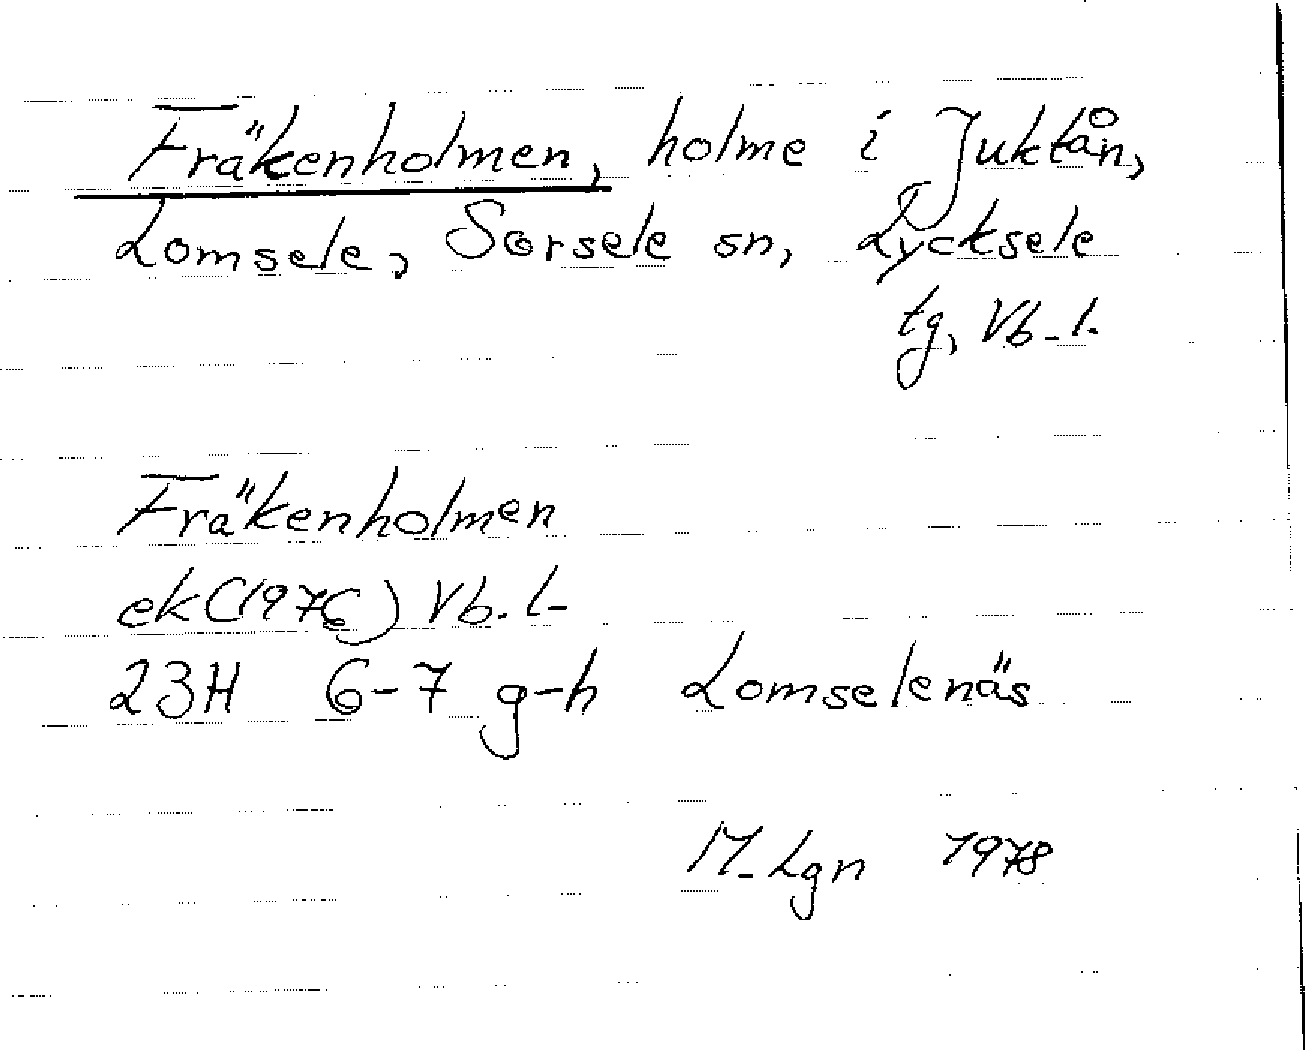 Fräkenholmen, holme i Juktån,
Lomsele, Sorsele sn, Lycksele
tg, Vb. l.
Fräkenholmen
ek (1976) Vb. l.
23H 6-7 g-h Lomselenäs
M. Lgn 1978